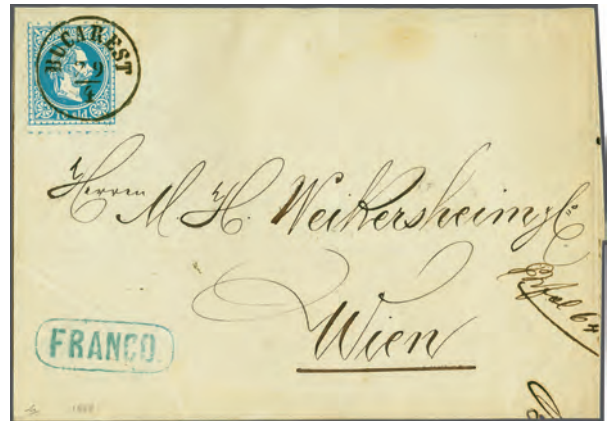 BUCAREST
9
4
Herren M. H. Weikersheim & C.º
Wien
FRANCO.
1868